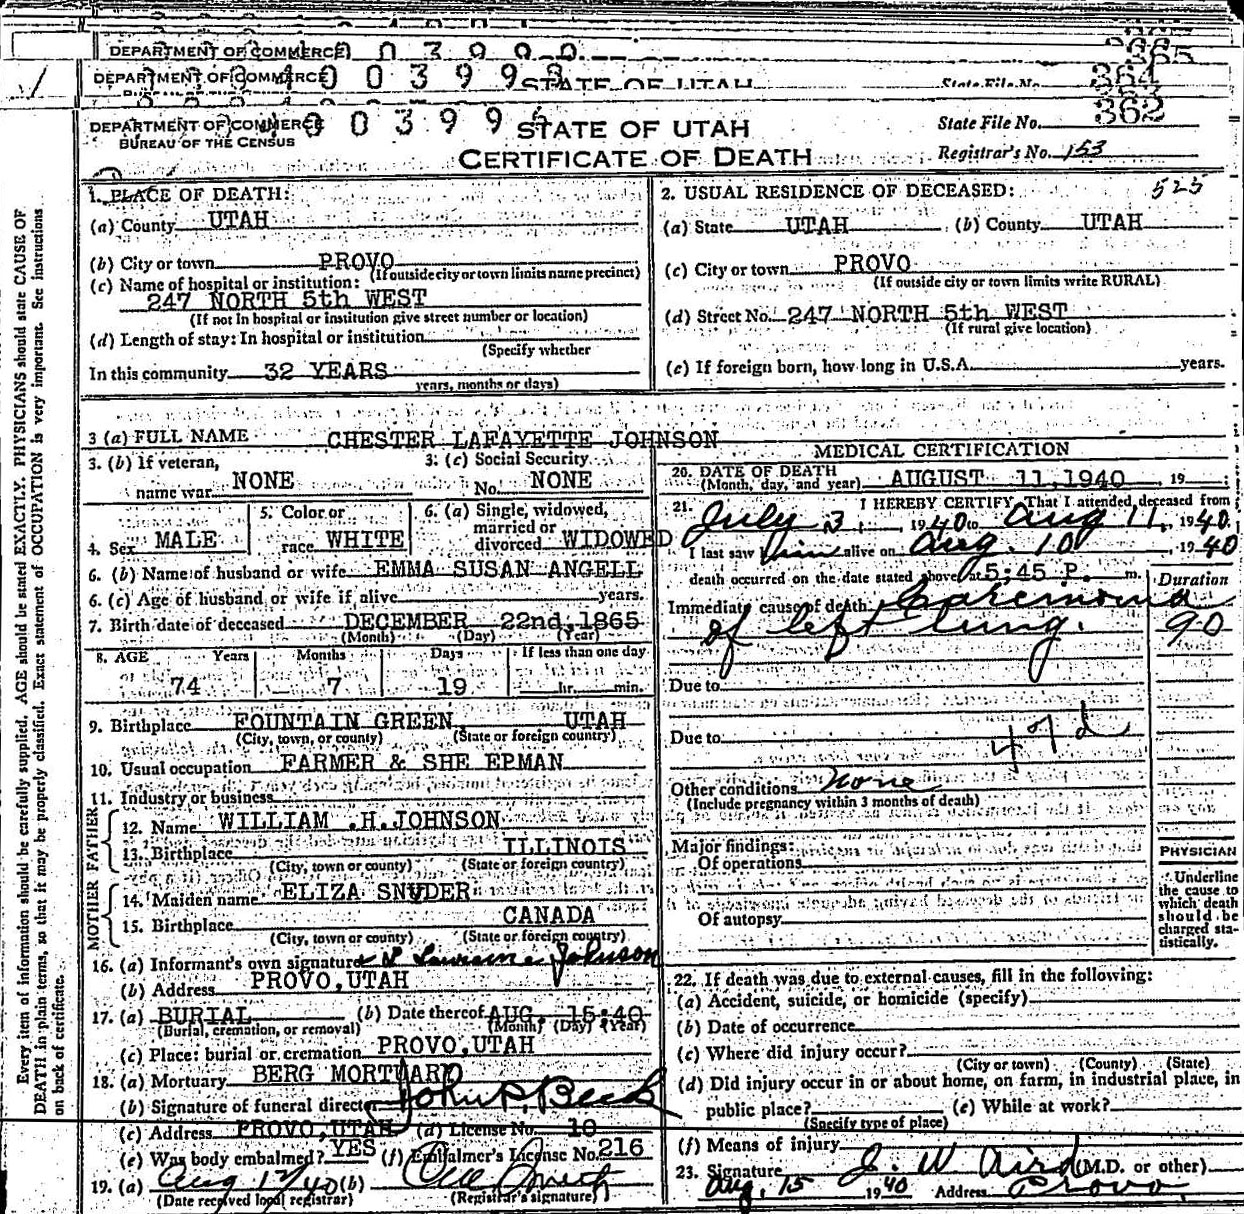 DEPARTMENT OF COMMERCE 0 0 3 9 9 9
DEPARTMENT OF COMMERCE 0 0 3 9 9 STATE OF UTAH State File No. 364
DEPARTMENT OF COMMERCE 0 0 3 9 9 STATE OF UTAH State File No. 362
BUREAU OF THE CENSUS CERTIFICATE OF DEATH Registrar's No. 153
525
Every item of information should be carefully supplied. AGE should be stated EXACTLY. PHYSICIANS should state CAUSE OF
DEATH in plain terms, so that it may be properly classified. Exact statement of OCCUPATION is very important. See instructions
on back of certificate.
1. PLACE OF DEATH:
(a) County UTAH
(b) City or town PROVO
(If outside city or town limits name precinct)
(c) Name of hospital or institution:
247 NORTH 5th WEST
(If not in hospital or institution give street number or location)
(d) Length of stay: In hospital or institution
(Specify whether
In this community 32 YEARS
years, months or days)
2. USUAL RESIDENCE OF DECEASED:
(a) State UTAH (b) County UTAH
(c) City or town PROVO
(If outside city or town limits write RURAL)
(d) Street No. 247 NORTH 5th WEST
(If rural give location)
(e) If foreign born, how long in U.S.A. years.
3 (a) FULL NAME CHESTER LAFAYETTE JOHNSON
3. (b) If veteran, name war NONE
3. (c) Social Security No. NONE
4. Sex MALE
5. Color or race WHITE
6. (a) Single, widowed, married or divorced WIDOWED
6. (b) Name of husband or wife EMMA SUSAN ANGELL
6. (c) Age of husband or wife if alive years.
7. Birth date of deceased DECEMBER 22nd, 1865
(Month) (Day) (Year)
8. AGE Years Months Days If less than one day
74 7 19 hr. min.
9. Birthplace FOUNTAIN GREEN, UTAH
(City, town, or county) (State or foreign country)
10. Usual occupation FARMER & SHE EPMAN
11. Industry or business
FATHER
12. Name WILLIAM .H.JOHNSON
13. Birthplace ILLINOIS
(City, town or county) (State or foreign country)
MOTHER
14. Maiden name ELIZA SNYDER
15. Birthplace CANADA
(City, town or county) (State or foreign country)
16. (a) Informant's own signature Johnson
(b) Address PROVO, UTAH
17. (a) BURIAL (b) Date thereof AUG. 15-40
(Burial, cremation, or removal) (Month) (Day) (Year)
(c) Place: burial or cremation PROVO, UTAH
18. (a) Mortuary BERG MORTUARY
(b) Signature of funeral director John P. Beck
(c) Address PROVO, UTAH (d) License No. 10
(e) Was body embalmed? YES (f) Embalmer's License No. 216
19. (a) Aug (b)
(Date received local registrar) (Registrar's signature)
MEDICAL CERTIFICATION
20. DATE OF DEATH
(Month, day, and year) AUGUST 11, 1940 , 19 ;
21. I HEREBY CERTIFY, That I attended deceased from
July 3, 1940 to Aug 11, 1940.
I last saw him alive on Aug. 10, 1940
death occurred on the date stated above at 5:45 P. m. Duration
Immediate cause of death Carcinoma
of left lung. 90
Due to
Due to
47d
Other conditions None
(Include pregnancy within 3 months of death)
Major findings:
Of operations
Of autopsy
PHYSICIAN
Underline
the cause to
which death
should be
charged sta-
tistically.
22. If death was due to external causes, fill in the following:
(a) Accident, suicide, or homicide (specify)
(b) Date of occurrence
(c) Where did injury occur?
(City or town) (County) (State)
(d) Did injury occur in or about home, on farm, in industrial place, in
public place? (e) While at work?
(Specify type of place)
(f) Means of injury
23. Signature J. W. Aird (M.D. or other)
Aug. 15 1940 Address Provo.